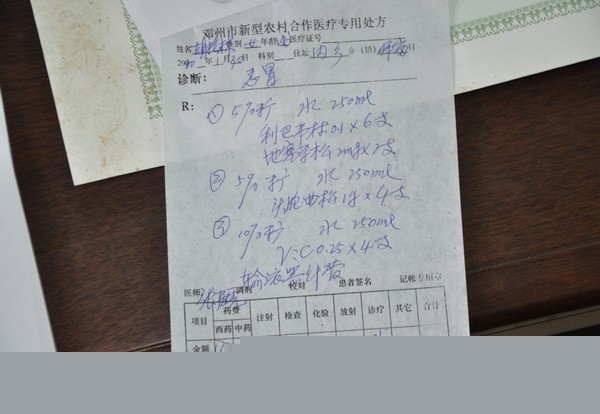 邓州市新型农村合作医疗专用处方
姓名 性别 女 年龄 医疗证号
月 日 科别 住址 (镇) 日
诊断: 感冒
R: ① 5%扩 水 250ml
利巴韦林 0.1×6支
地塞米松 2mg×2支
② 5%扩 水 250ml
头孢曲松 1g×4支
③ 10%扩 水 250ml
V-C 0.25×4支
输液器计费
医师 调剂 校对 患者签名 记帐专用章
项目 药费 注射 检查 化验 放射 诊疗 其它 合计
西药 中药
金额